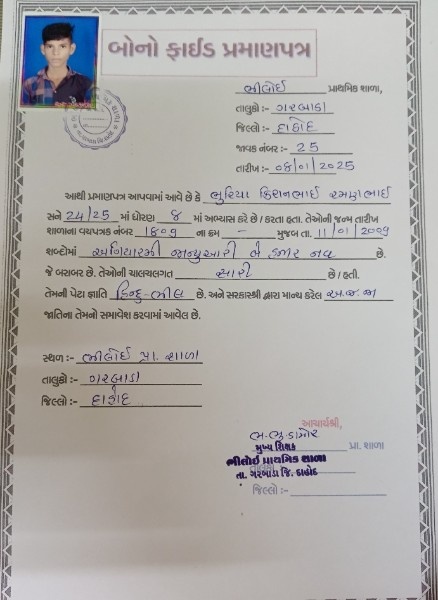 બોનો ફાઈડ પ્રમાણપત્ર
ભીલોઈ પ્રાથમિક શાળા,
તાલુકો :- ગરબાડા
જિલ્લો :- દાહોદ
જાવક નંબર :- 25
તારીખ :- 04/01/2025
આથી પ્રમાણપત્ર આપવામાં આવે છે કે ભુરિયા કિશનભાઈ રમણભાઈ
સને 24/25 માં ધોરણ ૪ માં અભ્યાસ કરે છે / કરતા હતા. તેઓની જન્મ તારીખ
શાળાના વયપત્રક નંબર 1૪૦૭ ના ક્રમ - મુજબ તા. 11/01/2009
શબ્દોમાં અગિયારમી જાન્યુઆરી બે હજાર નવ છે.
જે બરાબર છે. તેઓની ચાલચલગત સારી છે / હતી.
તેમની પેટા જ્ઞાતિ હિન્દુ-ભીલ છે. અને સરકારશ્રી દ્વારા માન્ય કરેલ અ.જ.જા
જાતિના તેમનો સમાવેશ કરવામાં આવેલ છે.
સ્થળ :- ભીલોઈ પ્રા. શાળા
તાલુકો :- ગરબાડા
જિલ્લો :- દાહોદ
આચાર્યશ્રી,
મુખ્ય શિક્ષક પ્રા. શાળા
ભીલોઈ પ્રાથમિક શાળા
તા. ગરબાડા જિ. દાહોદ
જિલ્લો :-